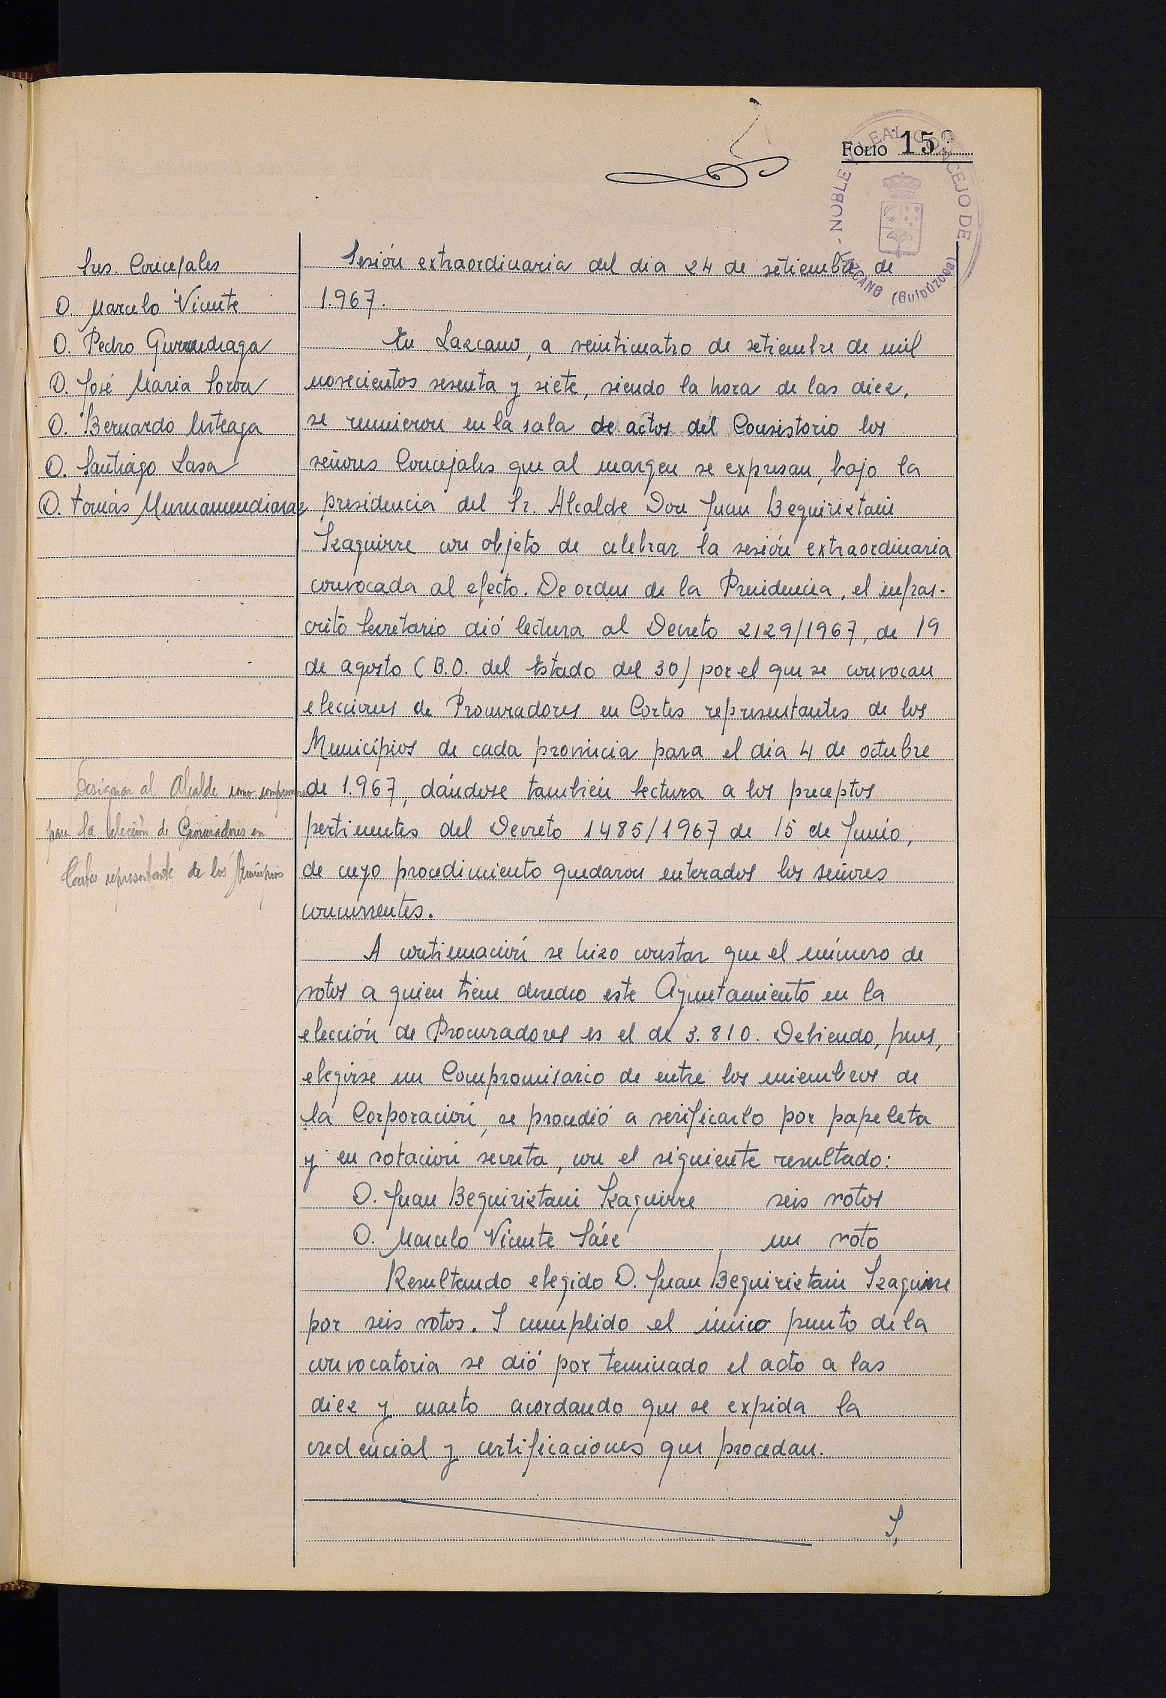 FOLIO 15
- NOBLE Y LEAL CONCEJO DE LAZCANO (Guipúzcoa)
Sres. Concejales
D. Marcelo Vicente
D. Pedro Gurrudiaga
D. José Maria Soroa
D. Bernardo Urteaga
D. Santiago Sasa
D. Tomás Murnamendiaraz
Designar al Alcalde como
para la elección de Procuradores en
Cortes representante de los Municipios
Sesión extraordinaria del dia 24 de setiembre de
1.967.
En Lazcano, a veinticuatro de setiembre de mil
novecientos sesenta y siete, siendo la hora de las diez,
se reunieron en la sala de actos del Consistorio los
señores Concejales que al margen se expresan, bajo la
presidencia del Sr. Alcalde Don Juan Beguiristain
Izaguirre con objeto de celebrar la sesión extraordinaria
convocada al efecto. De orden de la Presidencia, el infras-
crito Secretario dió lectura al Decreto 2129/1967, de 19
de agosto (B.O. del Estado del 30) por el que se convocan
elecciones de Procuradores en Cortes representantes de los
Municipios de cada provincia para el día 4 de octubre
de 1.967, dándose también lectura a los preceptos
pertinentes del Decreto 1485/1967 de 15 de Junio,
de cuyo procedimiento quedaron enterados los señores
concurrentes.
A continuación se hizo constar que el número de
votos a quien tiene derecho este Ayuntamiento en la
elección de Procuradores es el de 3.810. Debiendo, pues,
elegirse un Compromisario de entre los miembros de
la Corporación, se procedió a verificarlo por papeleta
y en votación secreta, con el siguiente resultado:
D. Juan Beguiristain Izaguirre seis votos
D. Marcelo Vicente Sáez un voto
Resultando elegido D. Juan Beguiristain Izaguirre
por seis votos. Y cumplido el único punto de la
convocatoria se dió por terminado el acto a las
diez y cuarto acordando que se expida la
credencial y certificaciones que procedan.